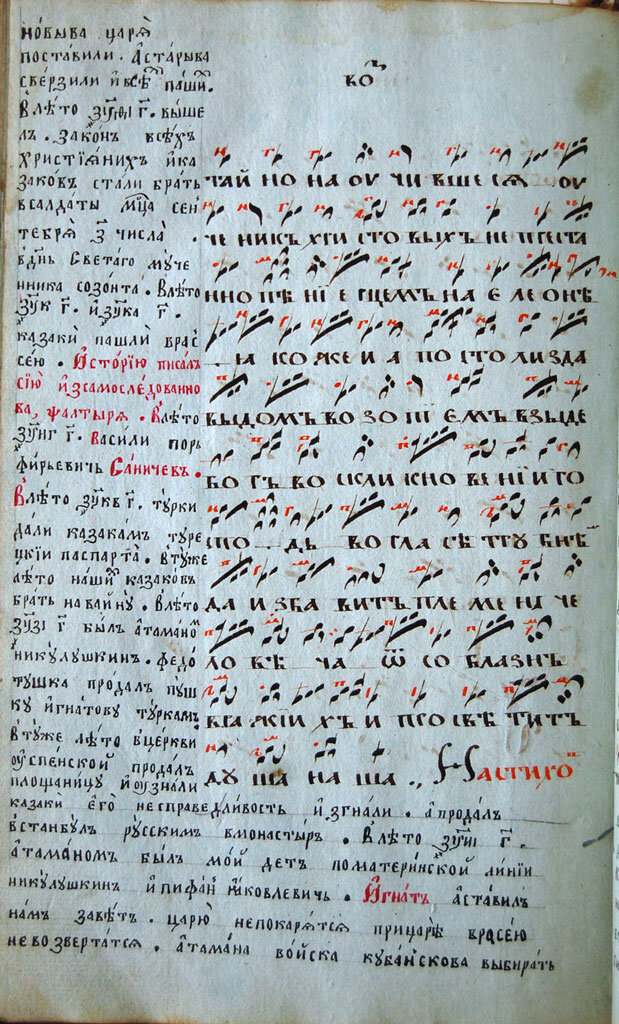 новыва царѧ̀
поставили. Астарыва
свѐрзили и҆всѣ̀ паши̑.
Влѣ́то г҃. вы́ше
лъ. зако́н всѣ́хъ
христїѧ́нихъ и҆ка
закѡвъ стали брать
всалдаты мц҃а сен
тебрѧ̀ з҃ числа̀.
вдн҃ь свѧтаго му́че
нника созо́нта. Влѣ́то
г҃. и҆ г҃.
казаки̏ пашли̏ врас
се́ю. И҆сто́рїю писалъ
сїю̀ и҆зсамослѣдованно
ва, ѱалтырѧ. Влѣ́то
г҃. васи́ли пор
фи́рьевичь Са́ничевъ.
Влѣ́то г҃. ту́рки
да́ли казакамъ туре
цкїи паспарта̀. втꙋже
лѣ́то на́ши казако́въ
бра́ть на вайнꙋ̀. Влѣ́то
г҃ бы́лъ а҆тама́но̑м
никꙋлꙋшкинъ. федо́
тꙋшка прода́лъ пꙋш
кꙋ и҆гна́товꙋ тꙋркамъ
втꙋ́же лѣ́то вце́ркви
ѹ҆спе́нской прода́лъ
площани́цꙋ и҆ѹзна́ли
казаки̏ е҆го̀ несправе́дливость и҆згна́ли. а҆прода́лъ
встанбꙋ́лъ рꙋсскимъ вмонасты́ръ. Влѣ́то г҃.
а҆тама́номъ бы́лъ мо́й детъ поматери́нской ли́нїи
никꙋлꙋшкинъ и҆пифа́нъ ꙗ҆́ковлевичь. И҆гна́тъ а҆ста́вилъ
на́мъ завѣ́тъ. царю̀ непокарѧ́тсѧ прицарѣ̀ врасе́ю
невозверта́тсѧ. а҆тама́на во́йска кꙋба́нскова выбира́ть
во̑з
тай но на оу чи вше сѧ оу
че никъ хри сто выхъ не преста
нно пѣ нїе рцемъ на е ле онѣ
ꙗ ко же и а по сто ли зда
вы домъ во зо пї емъ взыде
богъ во скликно ве нїи го
спо дь во гла сѣ трꙋ бнѣ
да и зба витъ пле ме ни че
ло вѣ ча ѿ со блазнъ
вра жїихъ и просвѣ титъ
дꙋ ша на ша.,